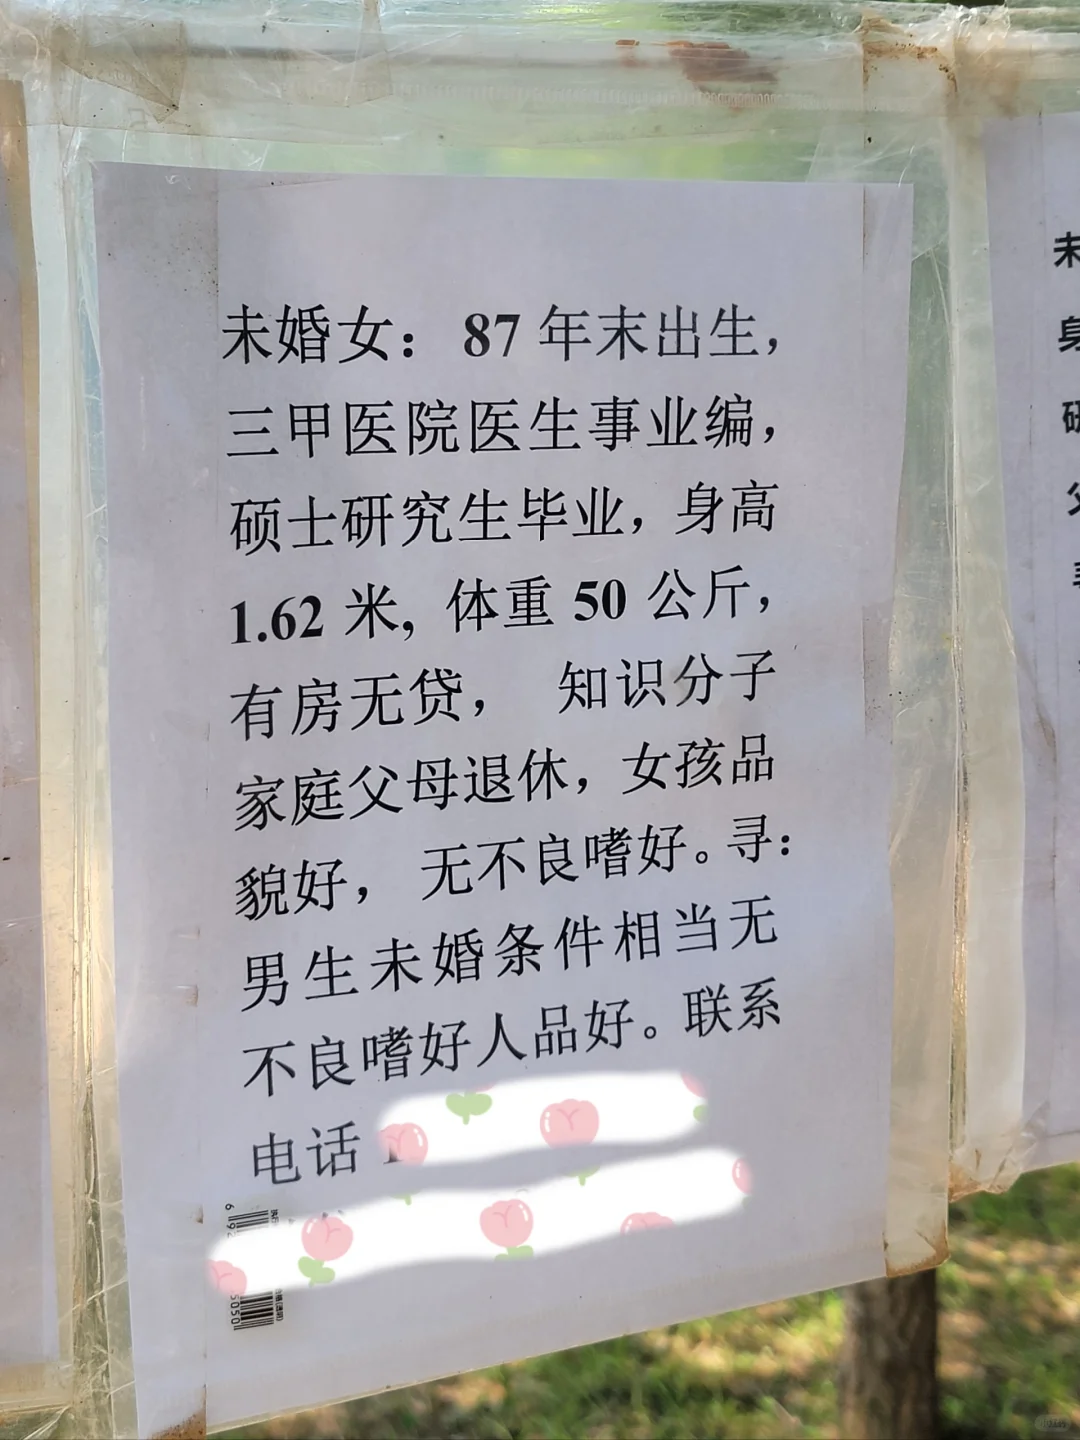 未婚女：87 年末出生，
三甲医院医生事业编，
硕士研究生毕业，身高
1.62 米，体重 50 公斤，
有房无贷， 知识分子
家庭父母退休，女孩品
貌好， 无不良嗜好。寻：
男生未婚条件相当无
不良嗜好人品好。联系
电话 1
未
身
研
父
小红书